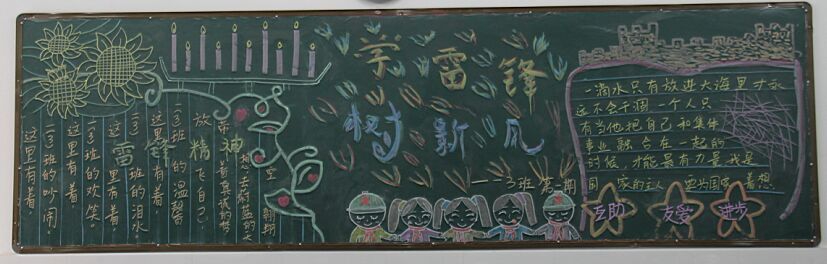 学雷锋
树新风
一3班 第一期
雷锋精神
放飞自己,
二(3)班的温馨
这里有着,
二(3)班的泪水
这里有着,
二(3)班的欢笑。
这里有着,
二(3)班的吵闹。
这里有着,
一滴水只有放进大海里才永
远不会干涸一个人只
有当他把自己和集体
事业融合在一起的
时候,才能最有力量我是
国家的主人 要为国家着想
互助
友爱
进步